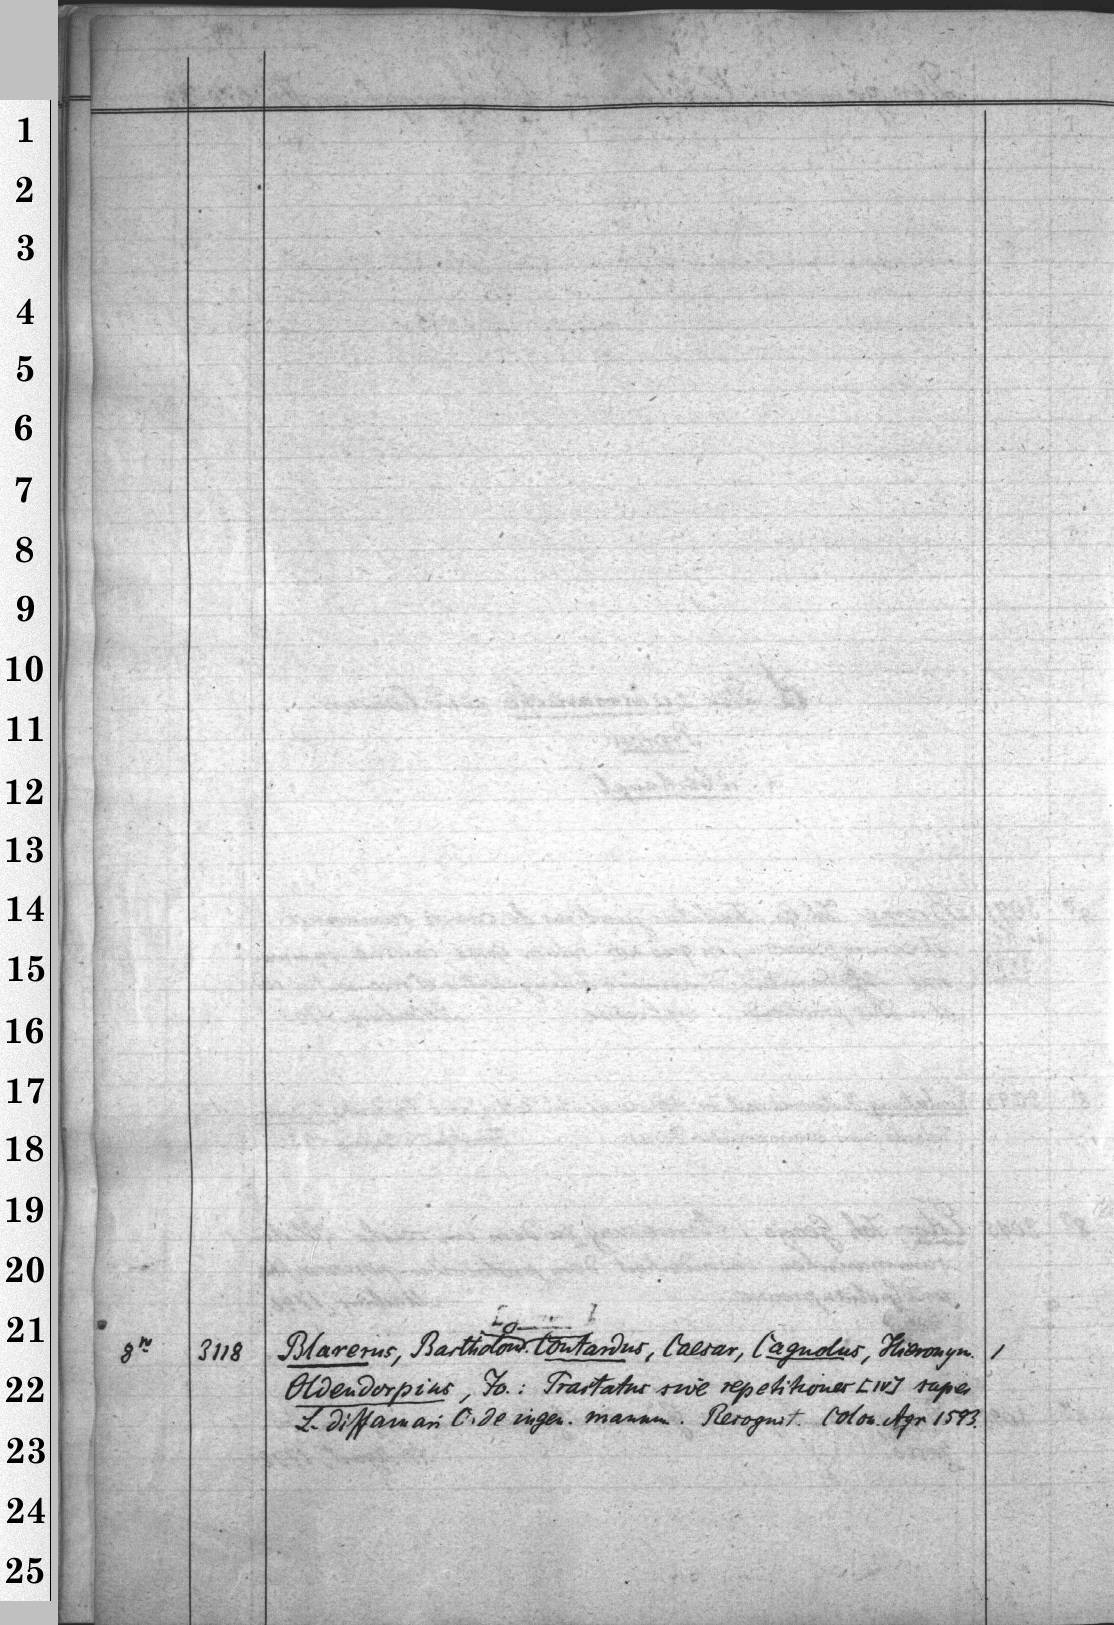 1
2
3
4
5
6
7
8
9
10
11
12
13
14
15
16
17
18
19
20
21
22
23
24
25
8vo 3118 Blarerus, Bartholom. Contardus, Caesar, Cagnolus, Hieronym. 1
Oldendorpius, Jo.: Tractatus sive repetitiones [IV] super
L. diffamari C. de ingen. manum. Recognit. Colon. Agr 1593.